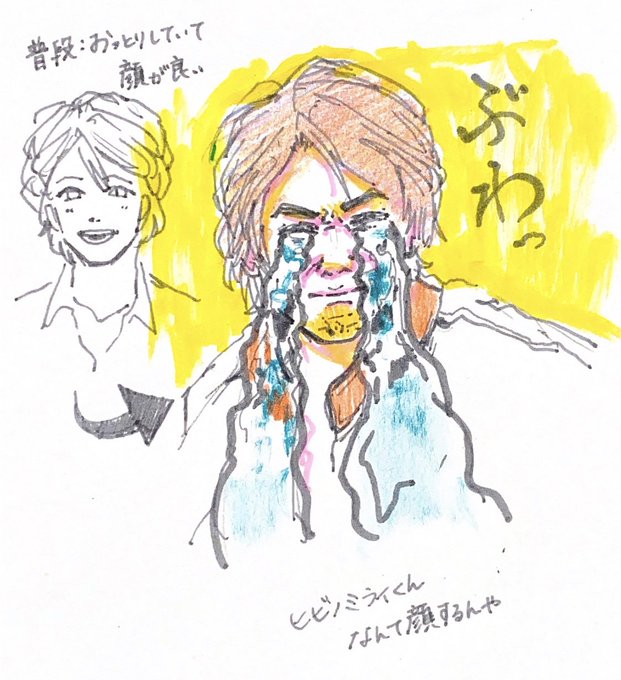 普段:おっとりしていて
顔が良い
ぶわっ
ヒビノミライくん
なんて顔するんや